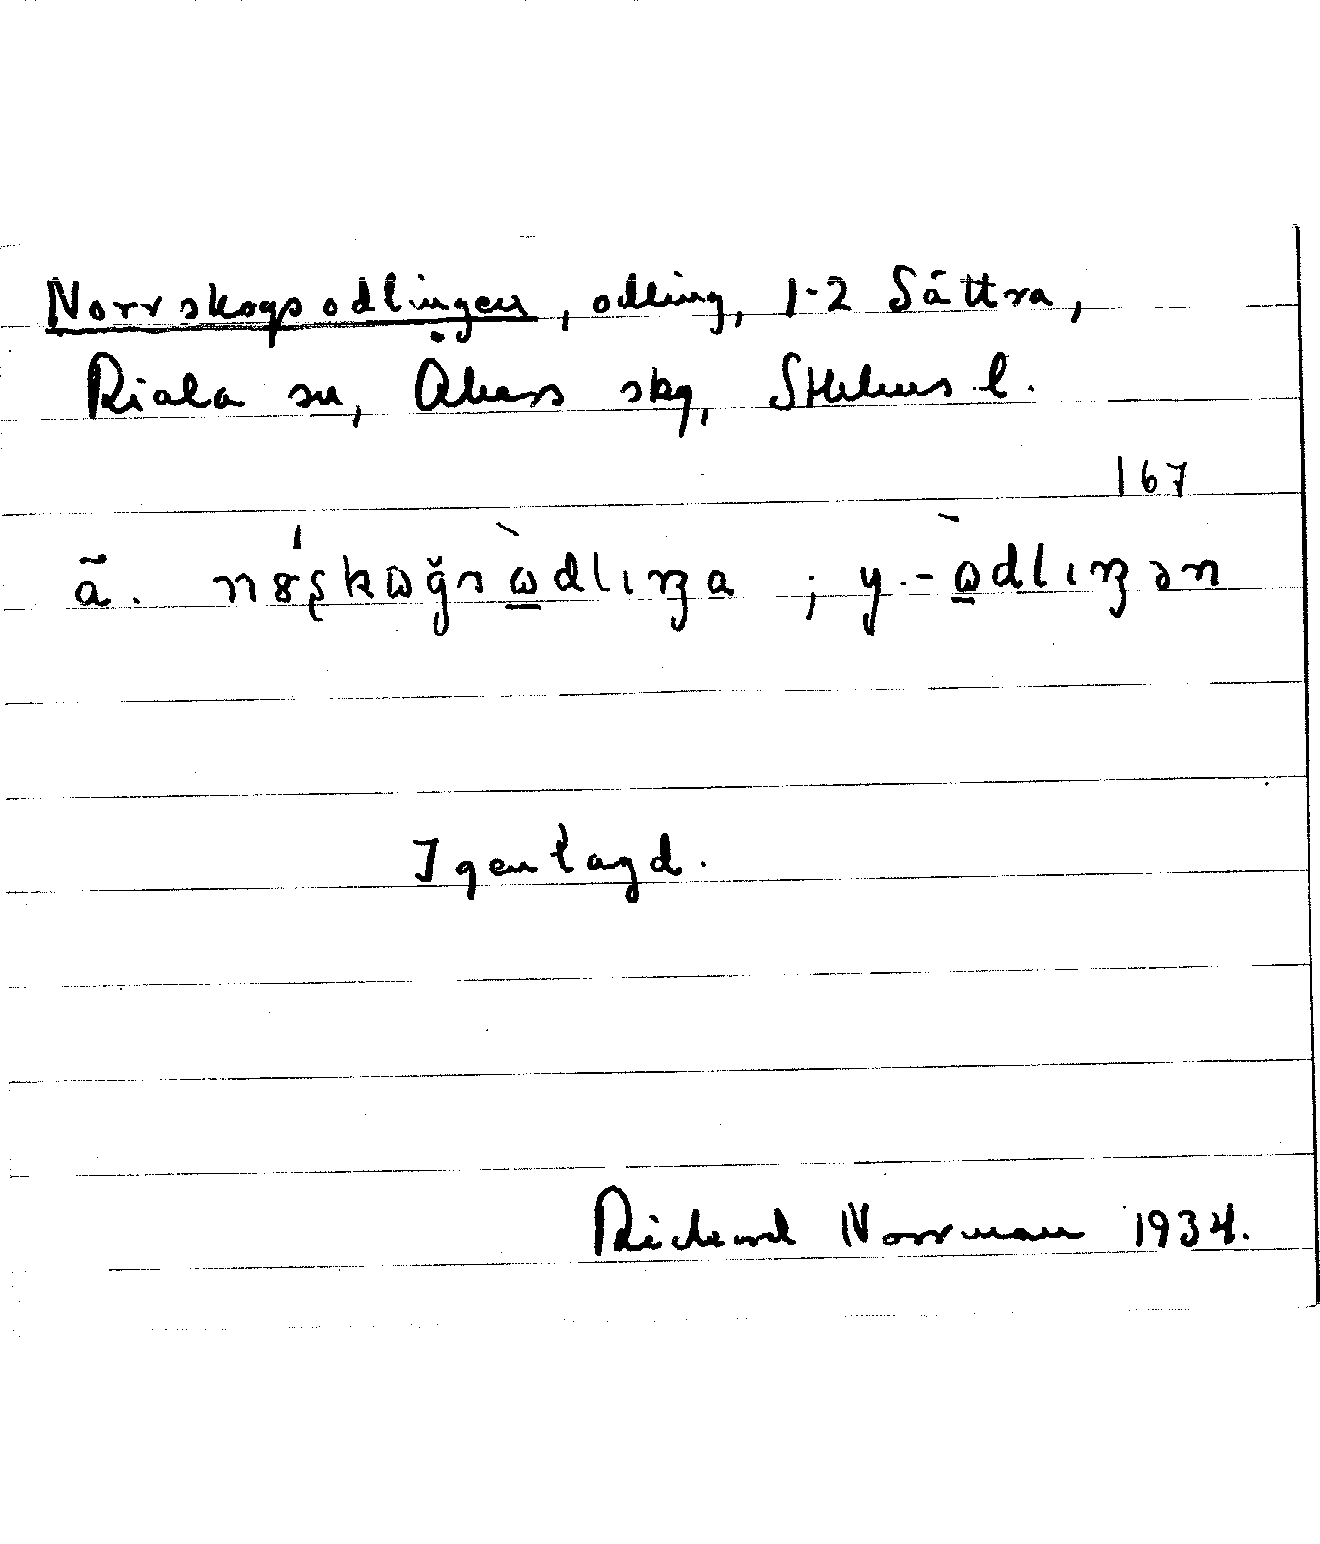 Norrskogsodlingen, odling, 1-2 Sättra,
Riala sn, Åkers skg, Sthlms l.
167
ā. nɤ́ʂkɷğsɷ̀dlɩŋa ; y.-ɷ̀dlɩŋən
Igenlagd.
Richard Norrman 1934.